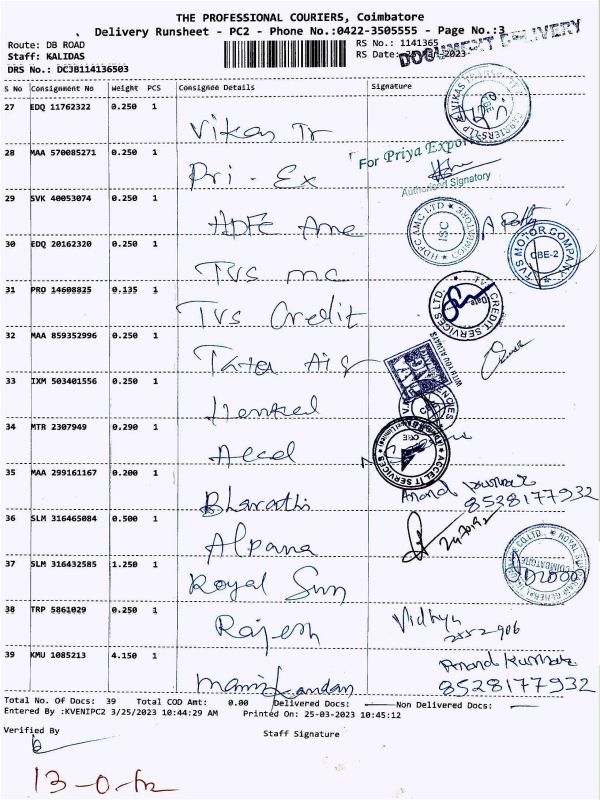 THE PROFESSIONAL COURIERS, Coimbatore
Delivery Runsheet - PC2 - Phone No.:0422-3505555 - Page No.:3
Route: DB ROAD RS No.: 1141365
DOCUMENT DELIVERY
Staff: KALIDAS RS Date: 2023
DRS No.: DCJB114136503
S No Consignment No Weight PCS Consignee Details Signature
27 EDQ 11762322 0.250 1
Vikas Tr
28 MAA 570085271 0.250 1
For Priya Export
Pri - Ex
Authorised Signatory
29 SVK 40053074 0.250 1
HDFC AMC LTD ISC COIMBATORE
HDFC Amc
30 EDQ 20162320 0.250 1
TVS MOTOR COMPANY CBE-2
TVS mc
31 PRO 14608825 0.135 1
TVS CREDIT SERVICES LTD. Date
TVS Credit
32 MAA 859352996 0.250 1
WITH YOU ALWAYS
TATA AIG
Tata Aig
33 IXM 503401556 0.250 1
Henkel
34 MTR 2307949 0.290 1
ACCEL IT SERVICES CBE
Accel
35 MAA 299161167 0.200 1
Anand Kumar
Bharathi 8528177932
36 SLM 316465084 0.500 1
Alpana
37 SLM 316432585 1.250 1
Royal Sun
38 TRP 5861029 0.250 1
Vidhya
Rajesh 2552906
39 KMU 1085213 4.150 1
Anand Kumar
Manikandan 8528177932
Total No. Of Docs: 39 Total COD Amt: 0.00 Delivered Docs: Non Delivered Docs:
Entered By :KVENIPC2 3/25/2023 10:44:29 AM Printed On: 25-03-2023 10:45:12
Verified By Staff Signature